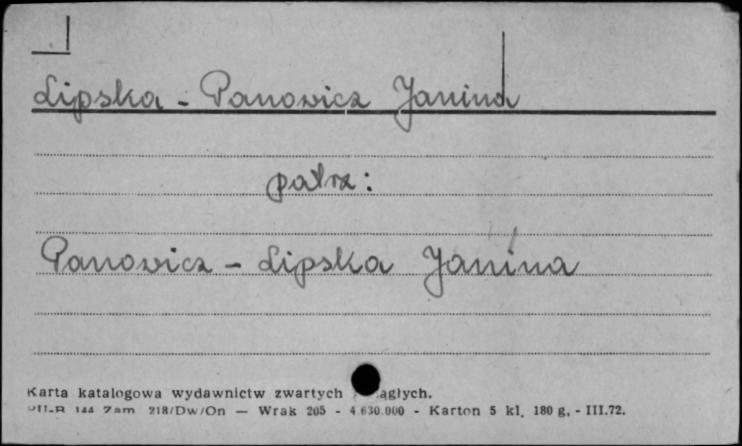 Lipska - Panowicz Janina
patrz:
Panowicz - Lipska Janina
Karta katalogowa wydawnictw zwartych
144 Zam 218/Dw/On — Wrak 205 - 4.630.000 - Karton 5 kl. 180 g. - III.72.